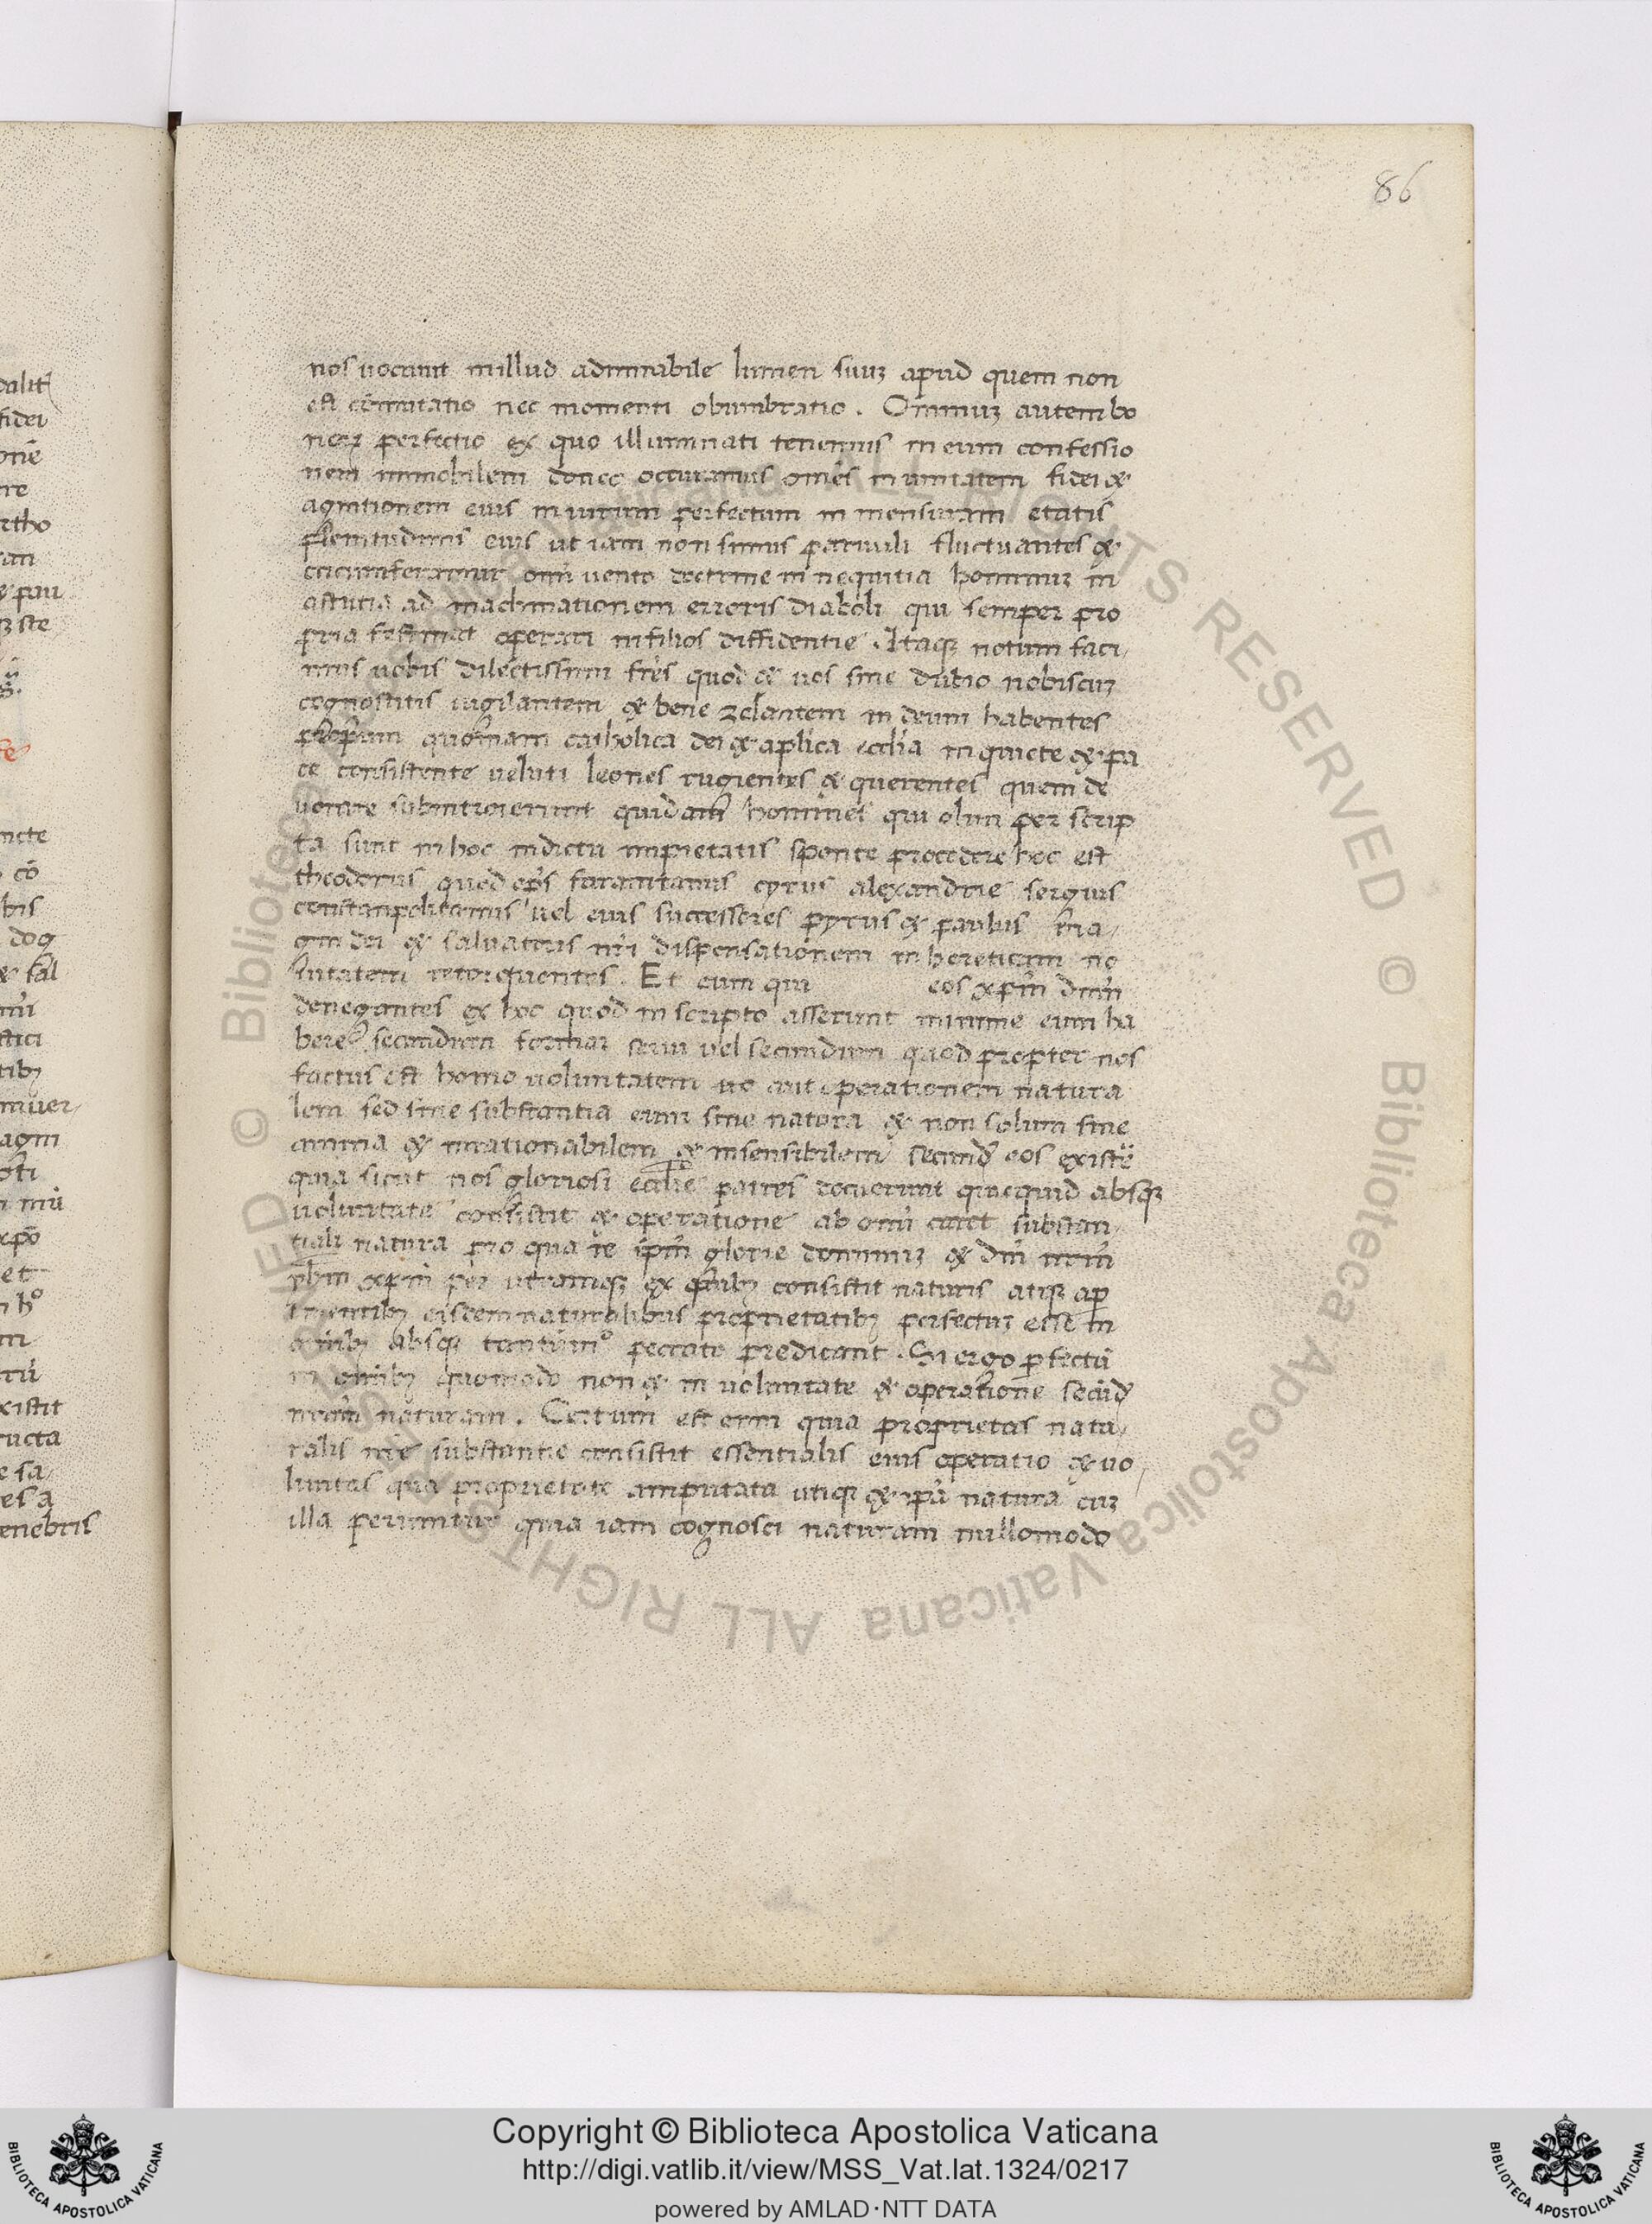 86
nos uocauit in illud admirabile lumen suuꝫ apud quem non
est cōmutatio nec momenti obumbratio. Omniuꝫ autem bo
noꝝ perfectio ex quo illuminati tenemus in eum confessio
nem immobilem donec occuramus om̄es in unitatem fidei &
agnitionem eius in uirum perfectum in mensuram etatis
plenitudinis eius ut iam non simus paruuli fluctuantes &
circumferamur om̄i uento doctrine in nequitia hominuꝫ in
astutia ad machinationem erroris diaboli qui semper pro
pria festinat operari in filios diffidentie. Itaqꝫ notum faci
mus uobis dilectissimi fr̄es quod & uos sine dubio nobiscuꝫ
cognostitis uigilantem & bene zelantem in deum habentes
quoniam catholica dei & aplīca ecclīa in quiete & pa
ce consistente ueluti leones rugientes & querentes quem de
uorare subintroierunt quidam homines qui olim per scrip
ta sunt in hoc indictu impietatis sponte procedere hoc est
theodorus quod ep̄s faranitanus cyrus alexandrie sergius
constanpolitanus uel eius successores pyrus & paulus
dei & saluatoris nr̄i dispensationem in hereticam no
uitatem retorquentes. Et cum qui eos xp̄m dn̄m
denegantes ex hoc quod in scripto asserunt minime eum ha
bere secundum formaꝫ serui uel secundum quod propter nos
factus est homo uoluntatem uo aut operationem natura
lem sed sine substantia eum sine natura & non solum sine
anima & irrationabilem & insensibilem secund̄ eos existē
quia sicut nos gloriosi ecclīe patres docuerunt quicquid absqꝫ
uoluntate consistit & operatione ab om̄i caret substan
tiali natura pro qua re ip̄m glorie dominuꝫ & dm̄ nr̄m
ih̄m xp̄m per utramqꝫ ex quibꝫ consistit naturis atqꝫ ap
eiscem naturalibus proprietatibꝫ perfectuꝫ esse in
om̄ibꝫ absqꝫ tantūm° peccato predicant. Si ergo p̱fectū
in om̄ibꝫ quomodo non & in uoluntate & operatione secūd̄
nr̄am naturam. Certum est enim quia proprietas natu
ralis nr̄e substantie consistit essentialis eius operatio & uo
luntas qua proprietate amputata utiqꝫ & ip̄a natura cuꝫ
illa perimitur quia iam cognosci naturam nullomodo
Copyright © Biblioteca Apostolica Vaticana
http://digi.vatlib.it/view/MSS_Vat.lat.1324/0217
powered by AMLAD·NTT DATA